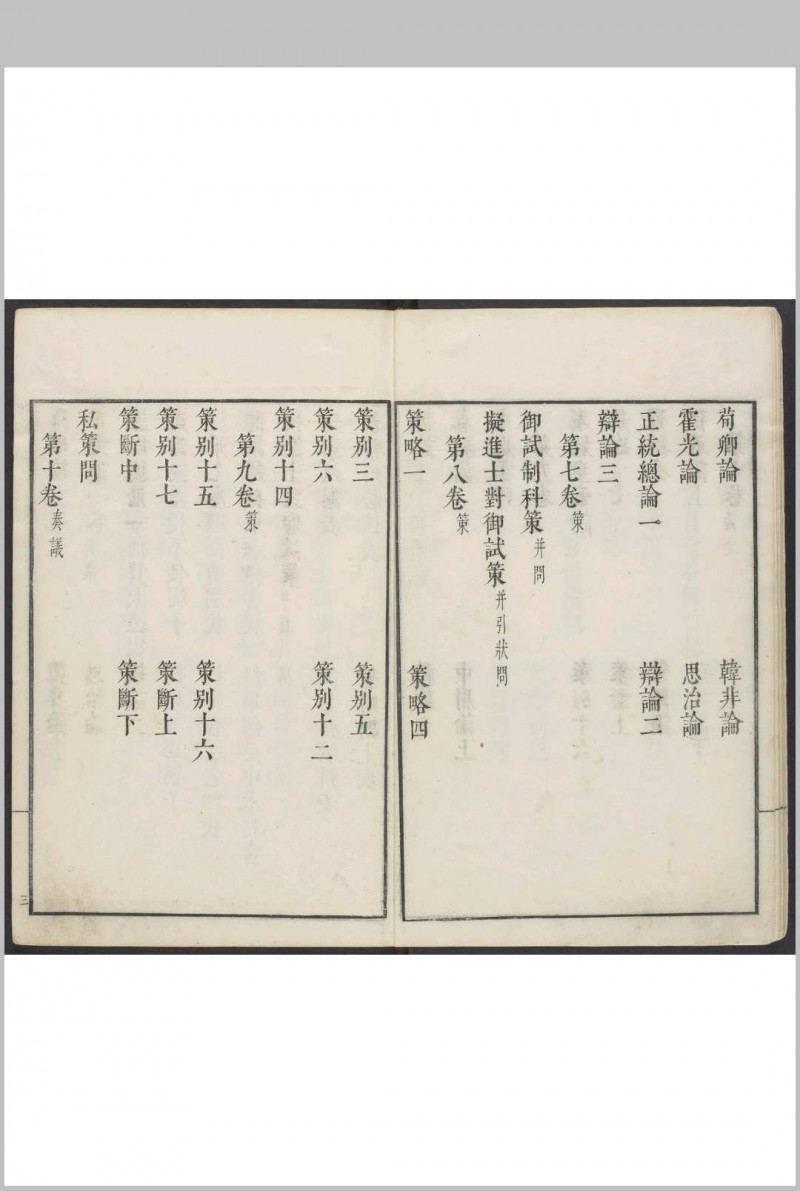 荀卿論 韓非論
霍光論 思治論
正統總論一 辯論二
辯論三
第七卷 策
御試制科策 并問
擬進士對御試策 并引狀問
第八卷 策
策略一 策略四
策别三 策别五
策别六 策别十二
策别十四
第九卷 策
策别十五 策别十六
策别十七 策斷上
策斷中 策斷下
私策問
第十卷 奏議
三